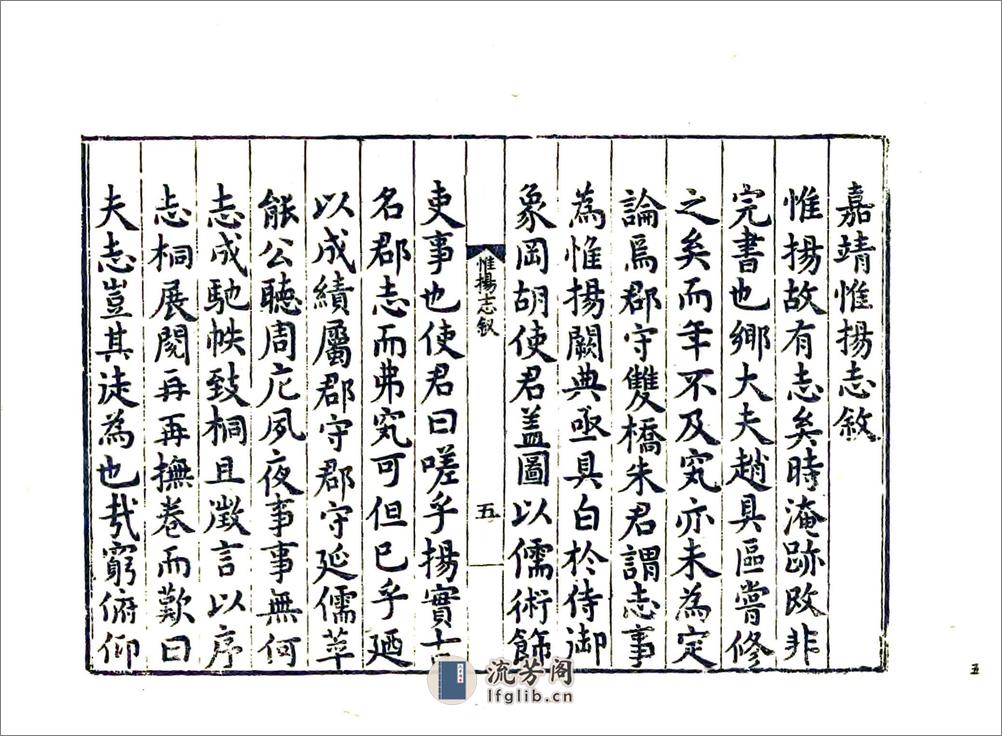 嘉靖惟揚志敘
惟揚故有志矣時淹跡改非
完書也鄉大夫趙具區嘗修
之矣而年不及究亦未為定
論焉郡守雙橋朱君謂志事
為惟揚闕典亟具白於侍御
象岡胡使君盖圖以儒術飾
惟揚志叙
五
吏事也使君曰嗟乎揚實士
名郡志而弗究可但已乎廼
以成績屬郡守郡守延儒萃
能公聽周庀夙夜事事無何
志成馳帙致桐且徵言以序
志桐展閱再再撫卷而歎曰
夫志豈其徒為也哉窮俯仰
五
流芳阁
lfglib.cn